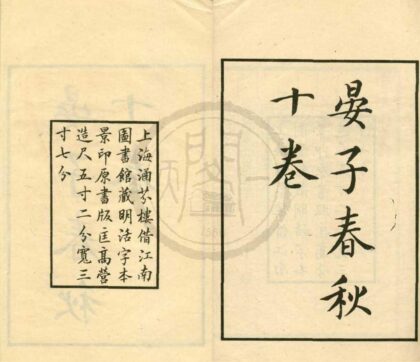 晏子春秋
十卷
上海涵芬樓借江南
圖書館藏明活字本
景印原書版匡高營
造尺五寸二分寬三
寸七分